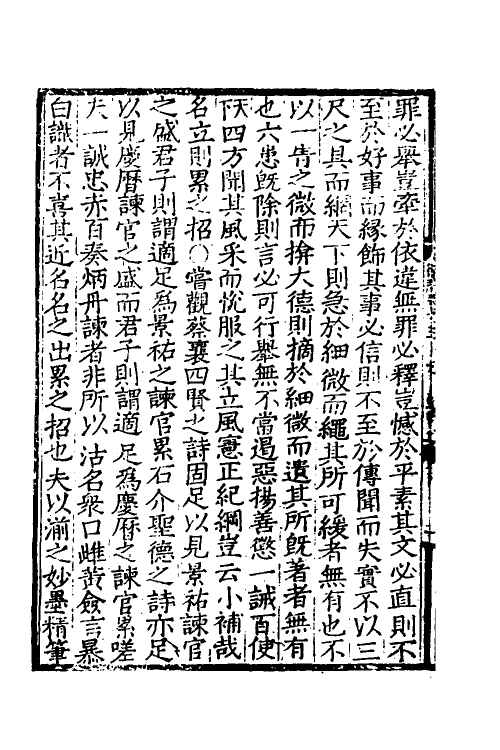 罪必舉豈牽於依違無罪必釋豈憾於平素其文必直則不
至於好事而縁飾其事必信則不至於傳聞而失實不以三
尺之具而綱天下則急於細微而繩其所可緩者無有也不
以一眚之微而揜大德則摘於細微而遺其所旣著者無有
也六患旣除則言必可行舉無不當遏惡揚善懲一誡百使
下四方聞其風采而恱服之其立風憲正紀綱豈云小補哉
名立則累之招〇嘗觀蔡襄四賢之詩固足以見景祐諫官
之盛君子則謂適足為景祐之諫官累石介聖德之詩亦足
以見慶曆諫官之盛而君子則謂適足為慶曆之諫官累嗟
夫一誠忠赤百奏炳丹諫者非所以沽名衆口雌黄僉言暴
白識者不喜其近名名之出累之招也夫以湔之妙墨精筆